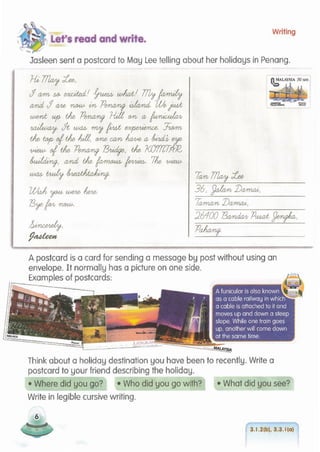 Writing
Let's read and write.
Jasleen sent a postcard to May Lee telling about her holidays in Penang.
Hi May Lee,
I am so excited! Guess what! My family
and I are now in Penang island. We just
went up the Penang Hill on a funicular
railway. It was my first experience. From
the top of the hill, one can have a bird's eye
view of the Penang Bridge, the KOMTAR
building, and the famous ferries. The view
was truly breathtaking.
Wish you were here.
Bye for now.
Sincerely,
Jasleen
MALAYSIA 30 sen
Tan May Lee
36, Jalan Damai,
Taman Damai,
26400 Bandar Pusat Jengka,
Pahang.
A postcard is a card for sending a message by post without using an
envelope. It normally has a picture on one side.
Examples of postcards:
A funicular is also known
as a cable railway in which
a cable is attached to it and
moves up and down a steep
slope. While one train goes
up, another will come down
at the same time.
MALAYSIA
Think about a holiday destination you have been to recently. Write a
postcard to your friend describing the holiday.
• Where did you go?
• Who did you go with?
• What did you see?
Write in legible cursive writing.
6
3.1.2(b), 3.3.1(a)